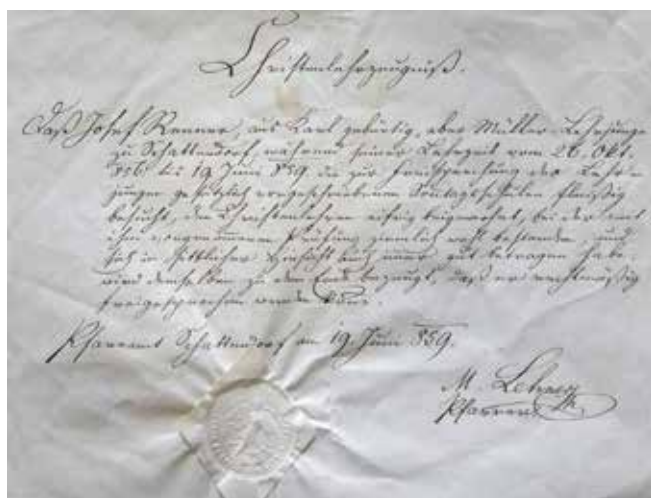 Christenlehrzeugniß.
Daß Josef Renner, aus Karl gebürtig, aber Müller-Lehrjunge
zu Schattendorf, während seiner Lehrzeit vom 26. Okt.
856 bis 19 Juni 859 die zur Freisprechung der Lehr-
jungen gesetzlich vorgeschriebenen Sontagsschulen fleißig
besucht, den Christenlehren eifrig beigewohnt, bei der mit
ihm vorgenommenen Prüfung ziemlich wohl bestanden, und
sich in sittlicher Hinsicht auch sehr gut betragen habe,
wird demselben zu dem Ende bezeugt, daß er rechtmäßig
freigesprochen werden könne.
Pfarramt Schattendorf am 19. Juni 859.
M. Lehner
Pfarrer